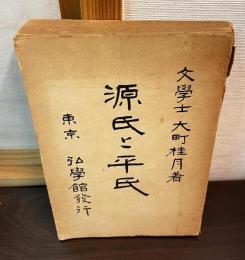 文學士 大町桂月著
源氏と平氏
東京 弘學館發行